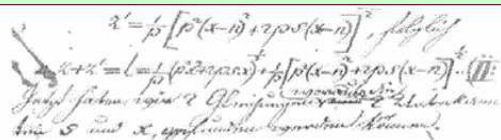 z' = 1/p [p²(x-n)² + 2ps(x-n)]^½, folglich
z+z' = l = 1/p (p²x²+2psx)^½ + 1/p [p²(x-n)²+2ps(x-n)]^½. (II.
Jetzt haben wir 2 Gleichungen, woraus die 2 Unbekann-
ten s und x, gefunden werden können.